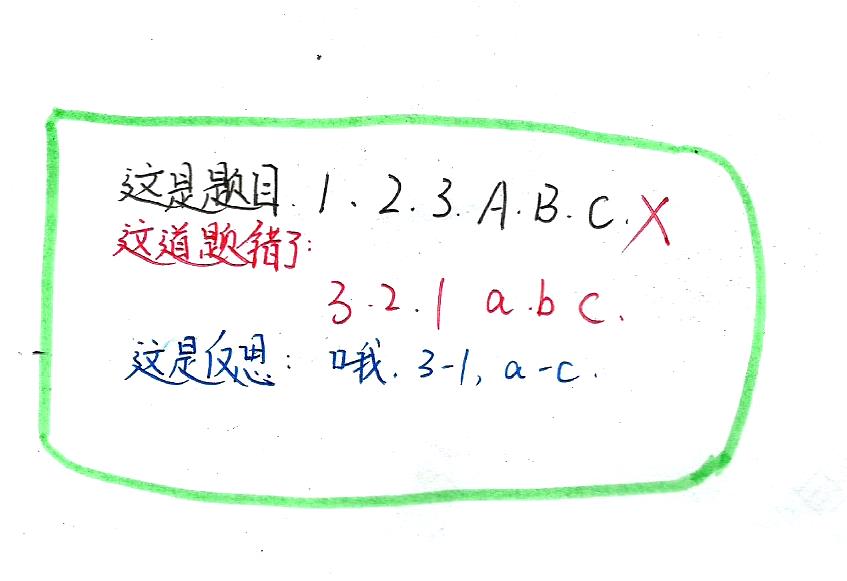 这是题目.1、2.3.A.B.C.X
这道题错了:
3.2.1 a.b c.
这是反思: 哦.3-1,a-c.